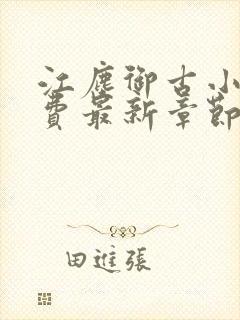 江塵御古小
費最新章節
田進張